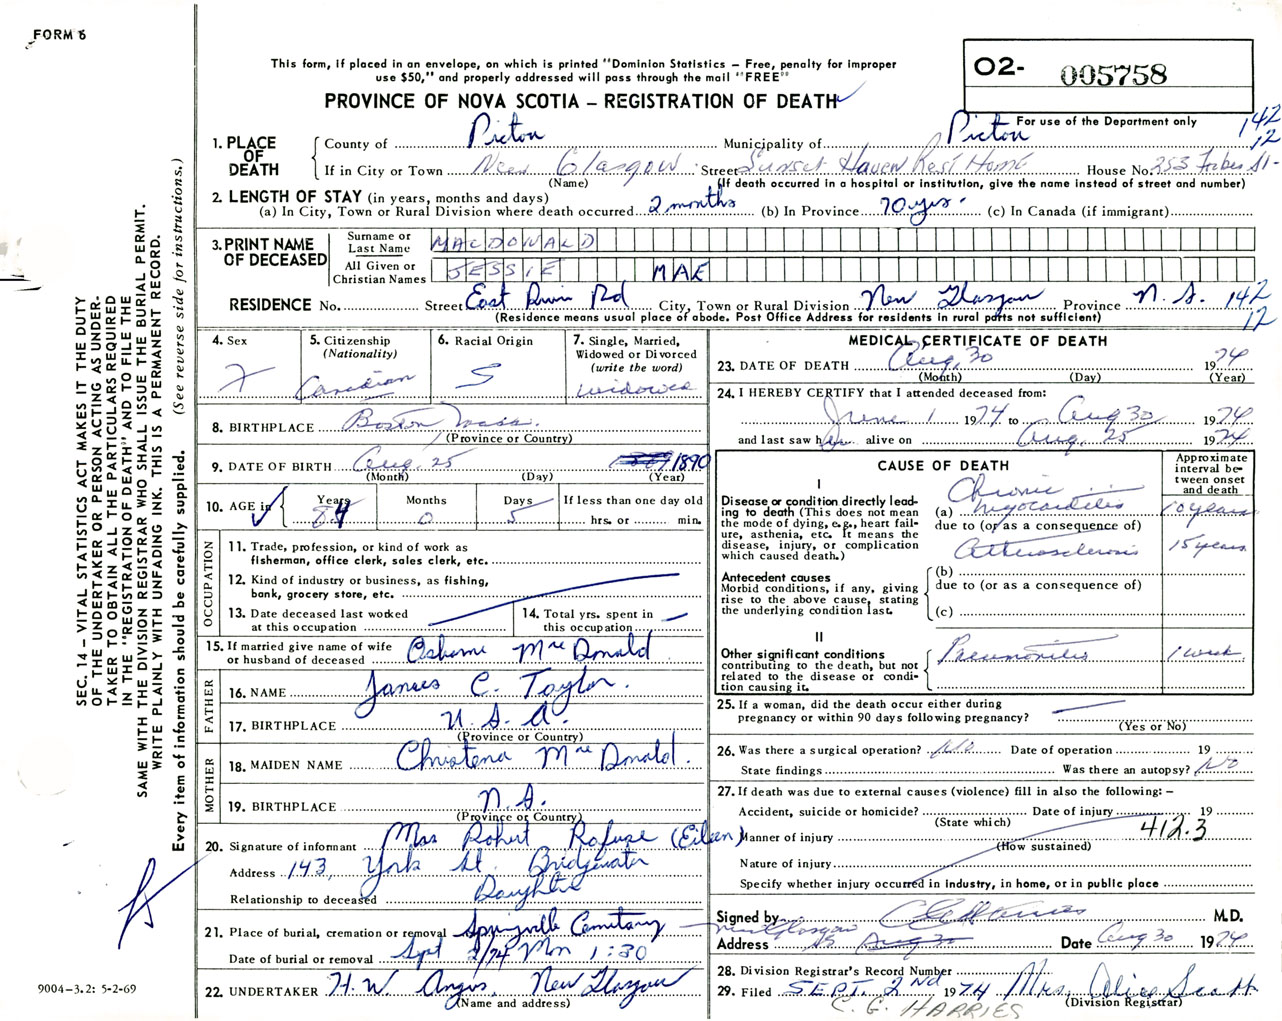 FORM 6
This form, if placed in an envelope, on which is printed "Dominion Statistics – Free, penalty for improper
use $50," and properly addressed will pass through the mail "FREE"
PROVINCE OF NOVA SCOTIA – REGISTRATION OF DEATH
O2- 005758
For use of the Department only
142
12
1. PLACE OF DEATH
County of Pictou Municipality of Pictou
If in City or Town New Glasgow Street Sunset Haven Rest Home House No. 253 Forbes St-
(Name) (If death occurred in a hospital or institution, give the name instead of street and number)
2. LENGTH OF STAY (in years, months and days)
(a) In City, Town or Rural Division where death occurred 2 months (b) In Province 70 yrs. (c) In Canada (if immigrant)
3. PRINT NAME OF DECEASED
Surname or Last Name MACDONALD
All Given or Christian Names JESSIE MAE
RESIDENCE No. Street East River Rd City, Town or Rural Division New Glasgow Province N.S. 142
(Residence means usual place of abode. Post Office Address for residents in rural parts not sufficient) 12
4. Sex F
5. Citizenship (Nationality) Canadian
6. Racial Origin S
7. Single, Married, Widowed or Divorced (write the word) widowed
8. BIRTHPLACE Boston Mass.
(Province or Country)
9. DATE OF BIRTH Aug. 25 1890
(Month) (Day) (Year)
10. AGE in Years 84 Months 0 Days 5 If less than one day old
hrs. or min.
OCCUPATION
11. Trade, profession, or kind of work as
fisherman, office clerk, sales clerk, etc.
12. Kind of industry or business, as fishing,
bank, grocery store, etc.
13. Date deceased last worked
at this occupation
14. Total yrs. spent in
this occupation
15. If married give name of wife
or husband of deceased Osborne MacDonald
FATHER
16. NAME James C. Taylor.
17. BIRTHPLACE U.S.A.
(Province or Country)
MOTHER
18. MAIDEN NAME Christena MacDonald.
19. BIRTHPLACE N.S.
(Province or Country)
20. Signature of informant Mrs Robert Rafuse (Eileen)
Address 143, York St. Bridgewater
Relationship to deceased Daughter
21. Place of burial, cremation or removal Springville Cemetary
Date of burial or removal Sept 2/74 Mon 1:30
22. UNDERTAKER H.W. Angus, New Glasgow
(Name and address)
MEDICAL CERTIFICATE OF DEATH
23. DATE OF DEATH Aug. 30 1974
(Month) (Day) (Year)
24. I HEREBY CERTIFY that I attended deceased from:
June 1 1974 to Aug 30 1974
and last saw her alive on Aug. 25 1974
CAUSE OF DEATH
Approximate interval between onset and death
I
Disease or condition directly leading to death (This does not mean the mode of dying, e.g., heart failure, asthenia, etc. It means the disease, injury, or complication which caused death.)
(a) Chronic myocarditis 10 years
due to (or as a consequence of)
Atherosclerosis 15 years
Antecedent causes
Morbid conditions, if any, giving rise to the above cause, stating the underlying condition last.
(b)
due to (or as a consequence of)
(c)
II
Other significant conditions
contributing to the death, but not related to the disease or condition causing it.
Pneumonitis 1 week.
25. If a woman, did the death occur either during
pregnancy or within 90 days following pregnancy?
(Yes or No)
26. Was there a surgical operation? No Date of operation 19
State findings Was there an autopsy? No
27. If death was due to external causes (violence) fill in also the following: –
Accident, suicide or homicide? Date of injury 19
(State which) 412.3
Manner of injury
(How sustained)
Nature of injury
Specify whether injury occurred in industry, in home, or in public place
Signed by CG Harries M.D.
Address New Glasgow NS Aug 30 Date Aug 30 1974
28. Division Registrar's Record Number
29. Filed SEPT. 2nd 1974 Mrs. Alice Scott
(Division Registrar)
C. G. HARRIES
SEC. 14 – VITAL STATISTICS ACT MAKES IT THE DUTY
OF THE UNDERTAKER OR PERSON ACTING AS UNDERTAKER TO OBTAIN ALL THE PARTICULARS REQUIRED
IN THE "REGISTRATION OF DEATH" AND TO FILE THE
SAME WITH THE DIVISION REGISTRAR WHO SHALL ISSUE THE BURIAL PERMIT.
WRITE PLAINLY WITH UNFADING INK. THIS IS A PERMANENT RECORD.
Every item of information should be carefully supplied. (See reverse side for instructions.)
9004-3.2: 5-2-69